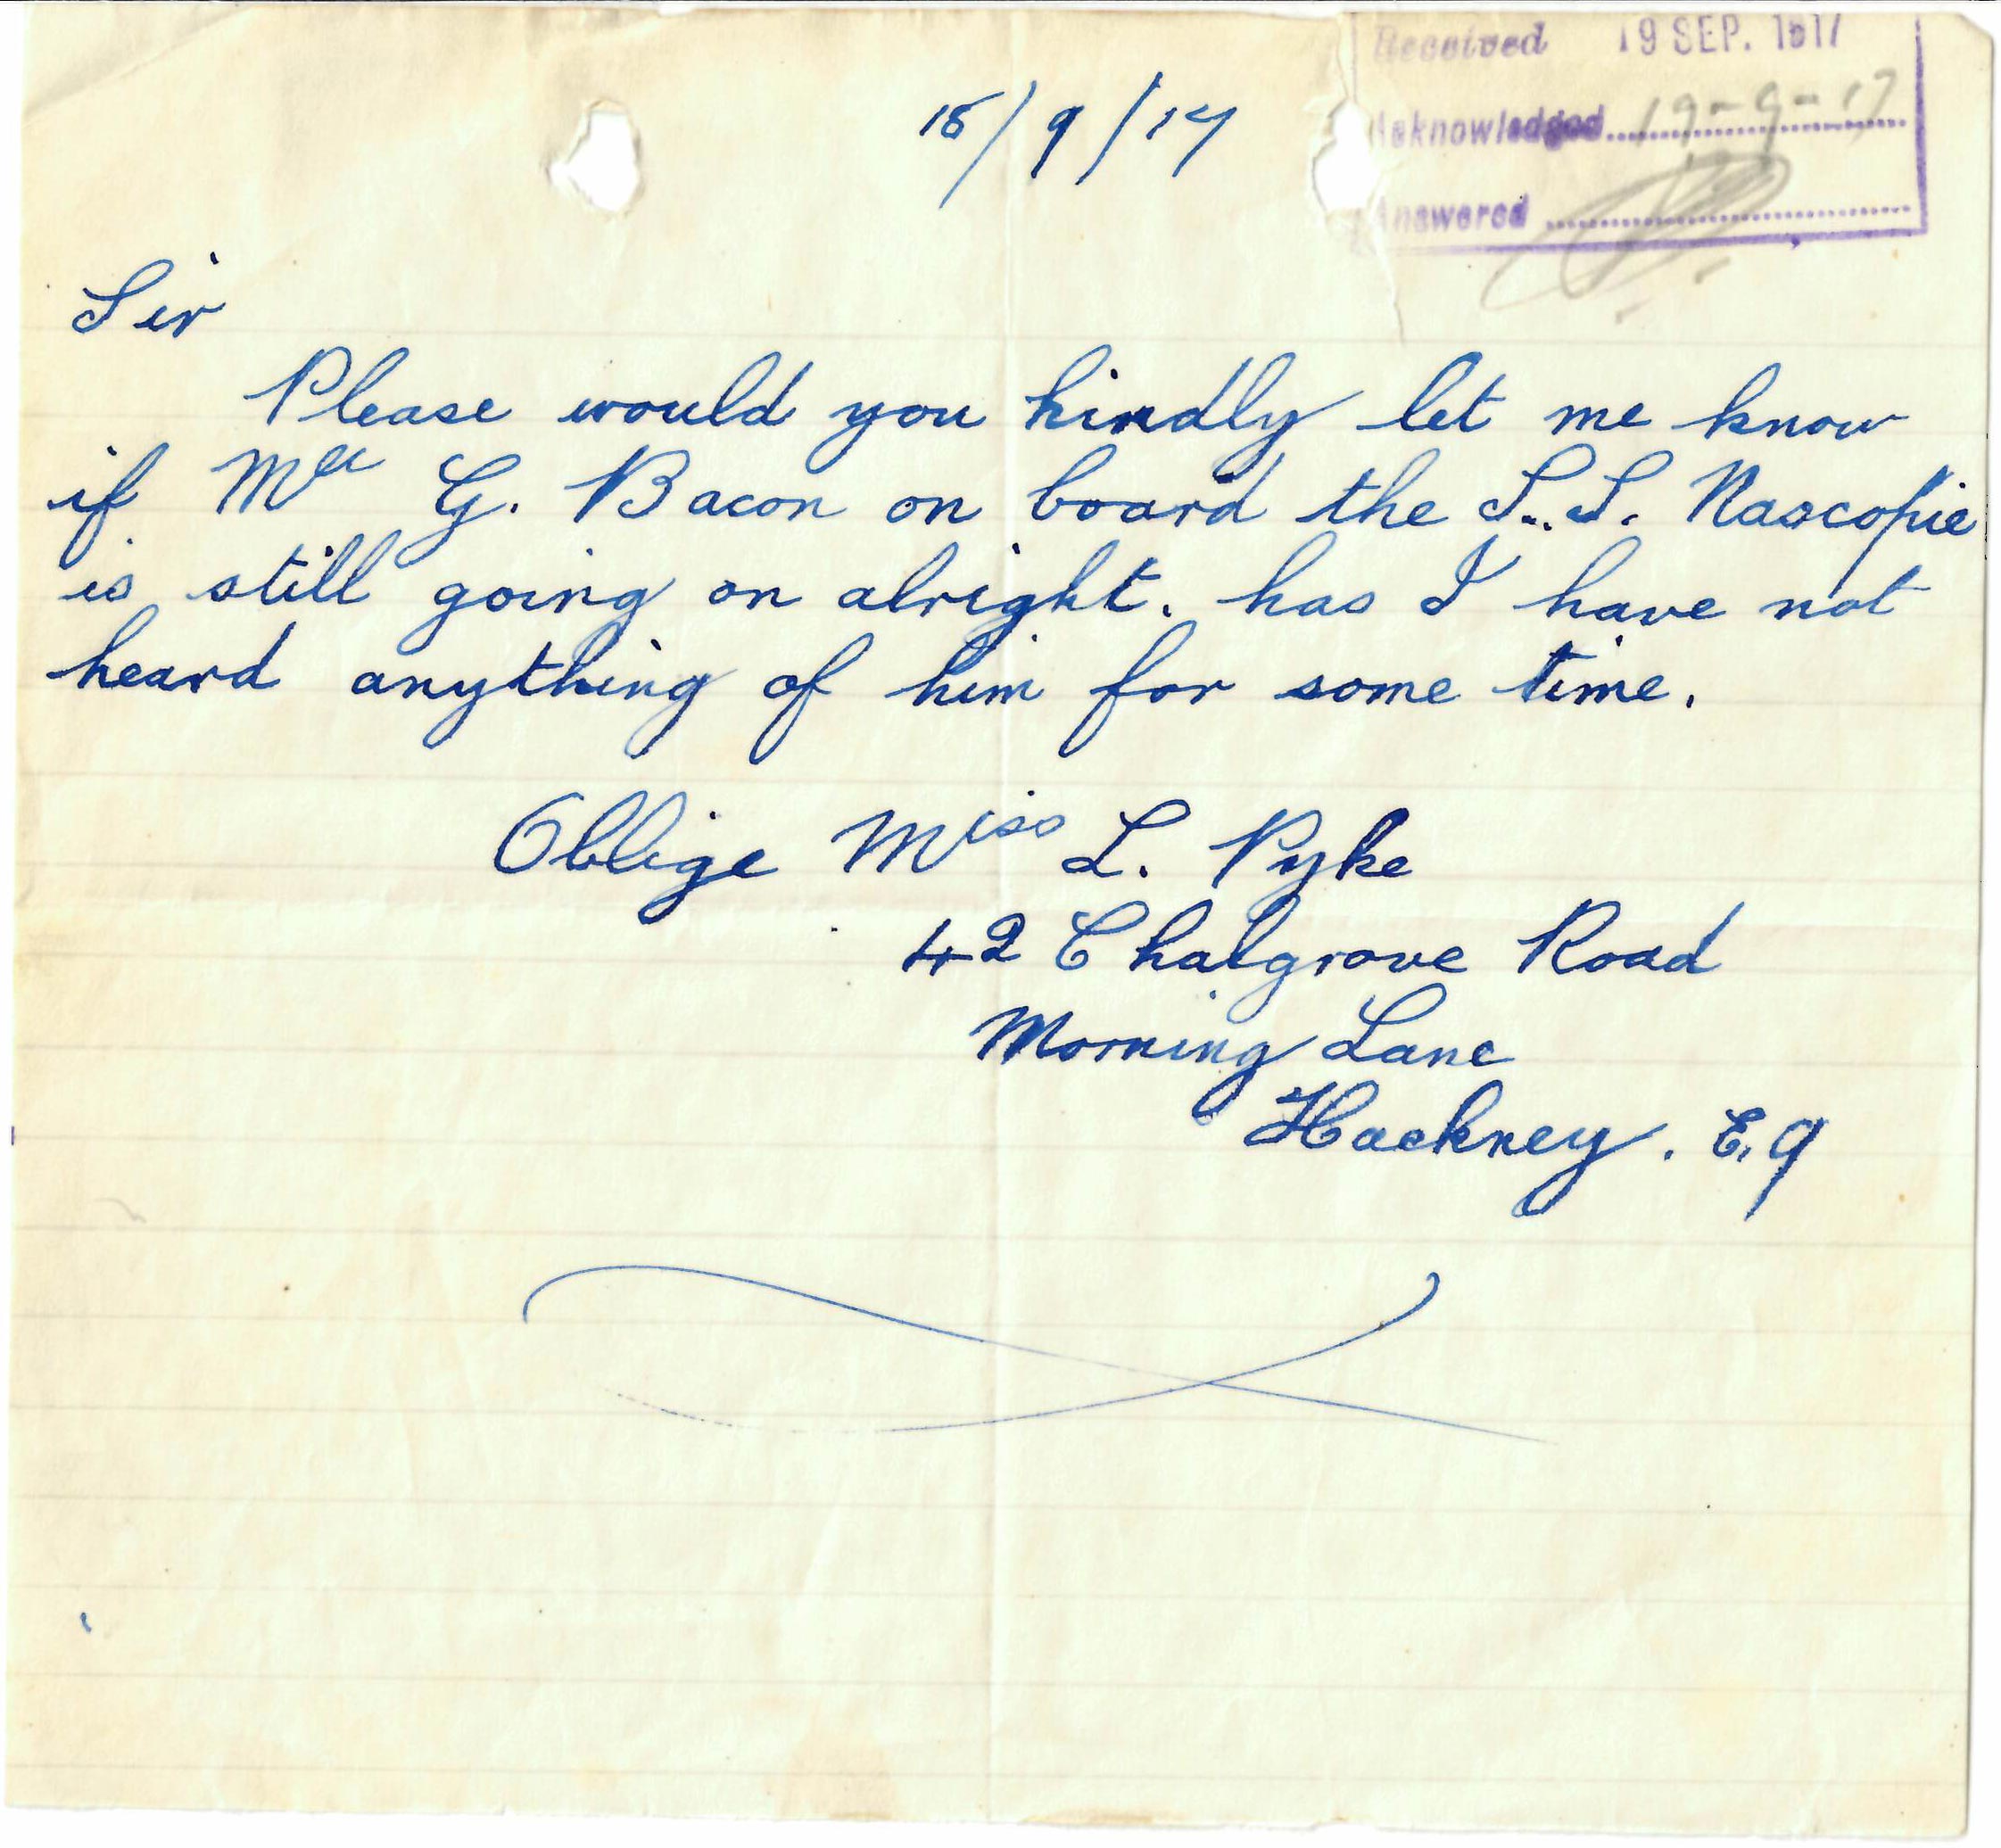 Received 19 SEP. 1917
Acknowledged 19-9-17
Answered
18/9/17
Sir
Please would you kindly let me know
if Mr G. Bacon on board the S.S. Nascopie
is still going on alright. has I have not
heard anything of him for some time.
Oblige Miss L. Pyke
42 Chalgrove Road
Morning Lane
Hackney. E.9